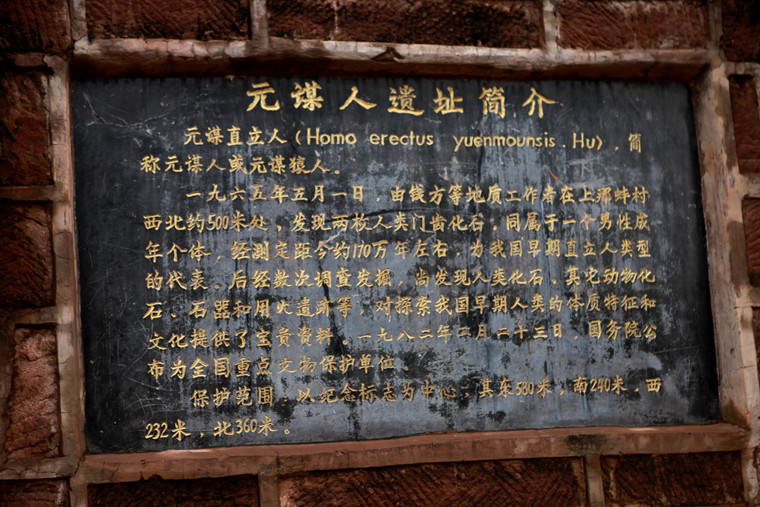 元谋人遗址简介
元谋直立人（Homo erectus yuenmounsis.Hu），简
称元谋人或元谋猿人。
一九六五年五月一日，由钱方等地质工作者在上那蚌村
西北约500米处，发现两枚人类门齿化石，同属于一个男性成
年个体，经测定距今约170万年左右，为我国早期直立人类型
的代表。后经数次调查发掘，尚发现人类化石、其它动物化
石、石器和用火遗迹等，对探索我国早期人类的体质特征和
文化提供了宝贵资料。一九八二年二月二十三日，国务院公
布为全国重点文物保护单位。
保护范围：以纪念标志为中心，其东580米，南240米，西
232米，北360米。